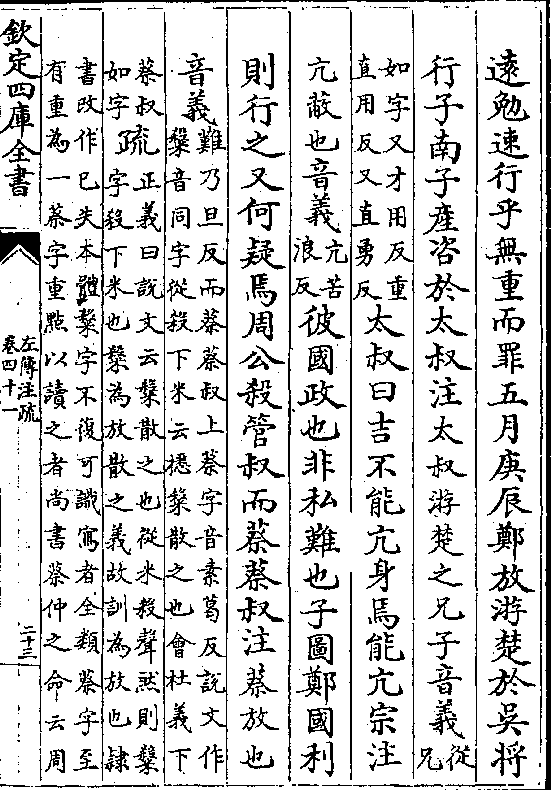 遠勉速行乎無重而罪五月庚辰鄭放游楚於吳將
行子南子產咨於太叔注太叔游楚之兄子音義從
兄
如字又才用反重
直用反又直勇反
太叔曰吉不能亢身焉能亢宗注
亢蔽也音義
亢苦
浪反
彼國政也非私難也子圖鄭國利
則行之又何疑焉周公殺管叔而蔡蔡叔注蔡放也
音義
難乃旦反而蔡蔡叔上蔡字音素葛反說文作
𥻦音同字從殺下米云𥻦散之也會杜義下
蔡叔
如字
疏
正義曰說文云𥻦散之也從米殺聲然則𥻦
字殺下米也𥻦為放散之義故訓為放也隸
書改作已失本體𥻦字不復可識寫者全類蔡字至
有重為一蔡字重點以讀之者尚書蔡仲之命云周
欽定四庫全書
左傳注疏
卷四十一
二十三